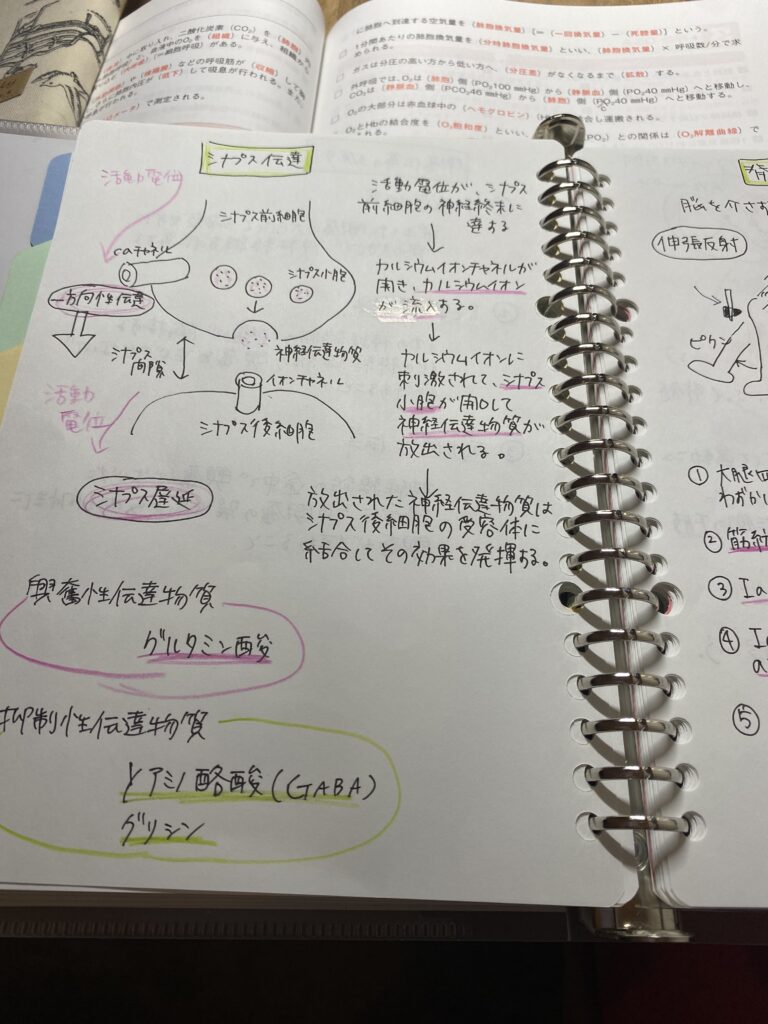 に肺胞へ到達する空気量を（肺胞換気量）[＝（一回換気量）－（死腔量）]という。
1分間あたりの肺胞換気量を（分時肺胞換気量）といい、（肺胞換気量）× 呼吸数/分で求
められる。
ガスは分圧の高い方から低い方へ（分圧差）がなくなるまで（拡散）する。
外呼吸では、O₂は（肺胞）側（PO₂100 mmHg）から（静脈血）側（PO₂40 mmHg）へと移動し、
CO₂は（静脈血）側（PCO₂46 mmHg）から（肺胞）側（PO₂40 mmHg）へと移動する。
O₂の大部分は赤血球中の（ヘモグロビン）
合し運搬される。
O₂とHbの結合度を（O₂飽和度）といい、
PO₂）との関係は（O₂解離曲線）で
り入れ、二酸化炭素（CO₂）を（肺胞）
血液中のO₂を（組織）に与え、組織から
（＝細胞呼吸）がある。
などの呼吸筋が（収縮）して胸
（低下）して吸息が行われる。また
で測定される。
シナプス伝達
活動電位
シナプス前細胞
caチャネル
シナプス小胞
一方向性伝達
神経伝達物質
シナプス
間隙
イオンチャネル
活動
電位
シナプス後細胞
シナプス遅延
活動電位が、シナプス
前細胞の神経終末に
達する
カルシウムイオンチャネルが
開き、カルシウムイオン
が流入する。
カルシウムイオンに
刺激されて、シナプス
小胞が開口して
神経伝達物質が
放出される。
放出された神経伝達物質は
シナプス後細胞の受容体に
結合してその効果を発揮する。
興奮性伝達物質
グルタミン酸
抑制性伝達物質
γアミノ酪酸(GABA)
グリシン
脳を介さ
伸張反射
ピクン
① 大腿四
わずかに
② 筋紡
③ Ia
④ Ia
⑤